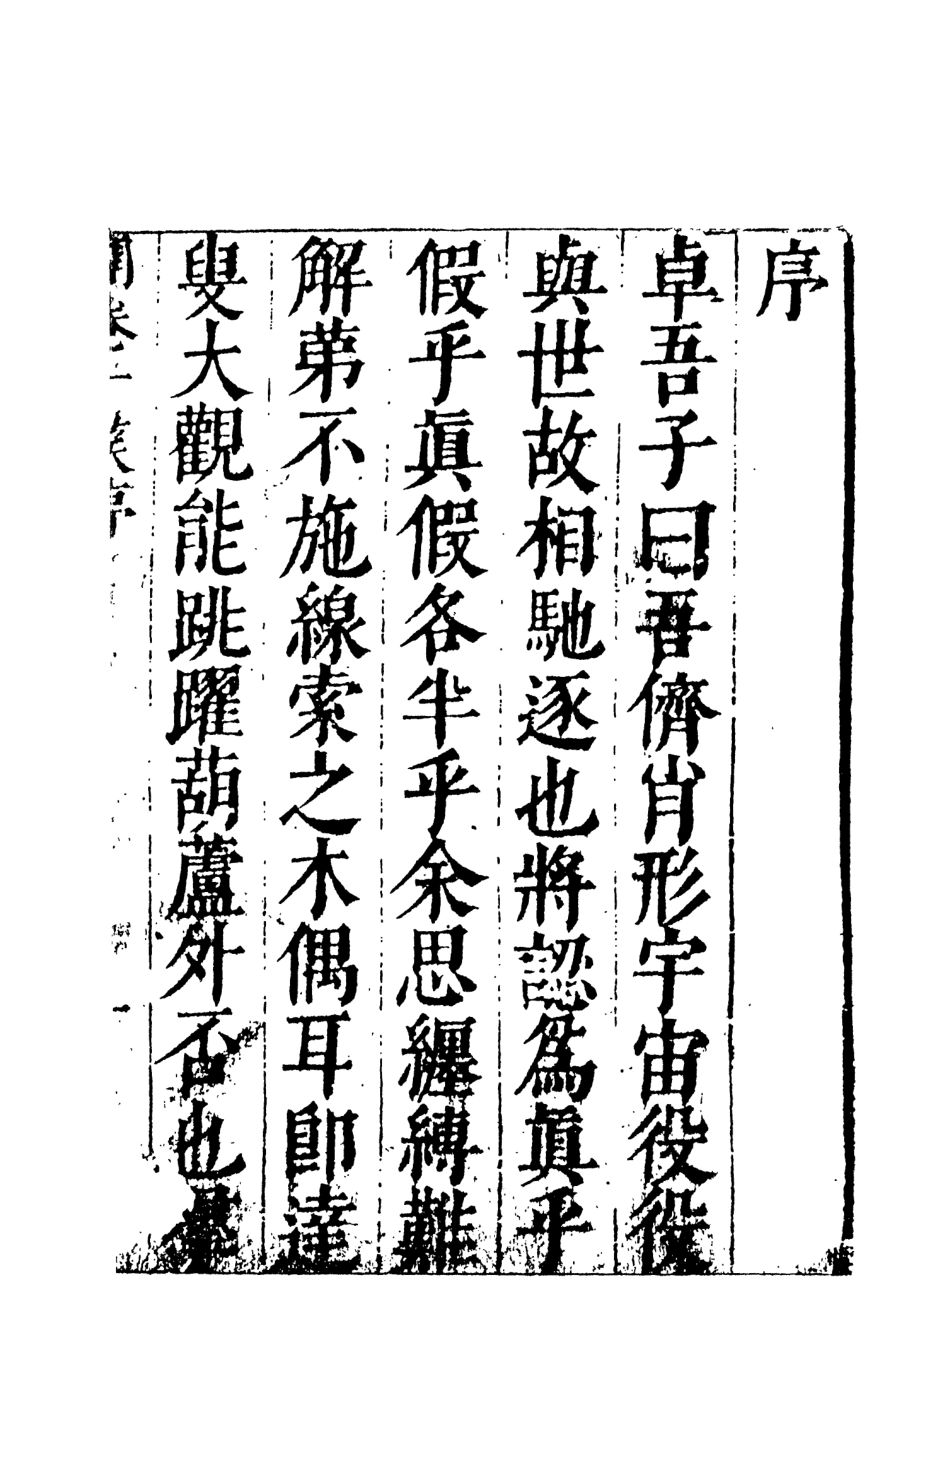 序
卓吾子曰吾儕肖形宇宙役役
與世故相馳逐也將認爲眞乎
假乎眞假各半乎余思纏縛難
解第不施線索之木偶耳卽達
叟大觀能跳躍葫蘆外否也
開卷一笑序